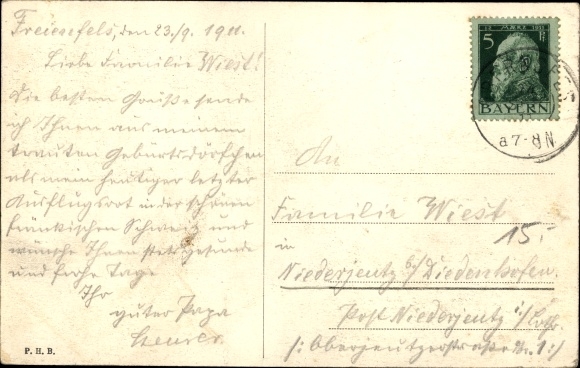 Freienfels, den 23./9. 1911.
Liebe Familie Wiest!
Die besten Grüße sende
ich Ihnen aus meinem
trauten Geburtsdörfchen
als mein heutiger letzter
Ausflugsort in der schönen
fränkischen Schweiz und
wünsche Ihnen stets gesunde
und frohe Tage
Ihr
guter Papa
P. H. B.
5 Pf
BAYERN
a 7-8 N
An
Familie Wiest
15.-
in
Niederjeutz b/ Diedenhofen.
Post Niederjeutz i/ Lothr.
/: Oberjeutzerstraße 1 :/